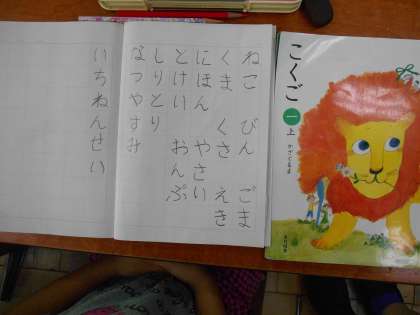 ねこ　びん　ごま
くま　くさ　えき
にほん　やさい
とけい　おんぷ
しりとり
なつやすみ
いちねんせい
こくご
一
上
かざぐるま